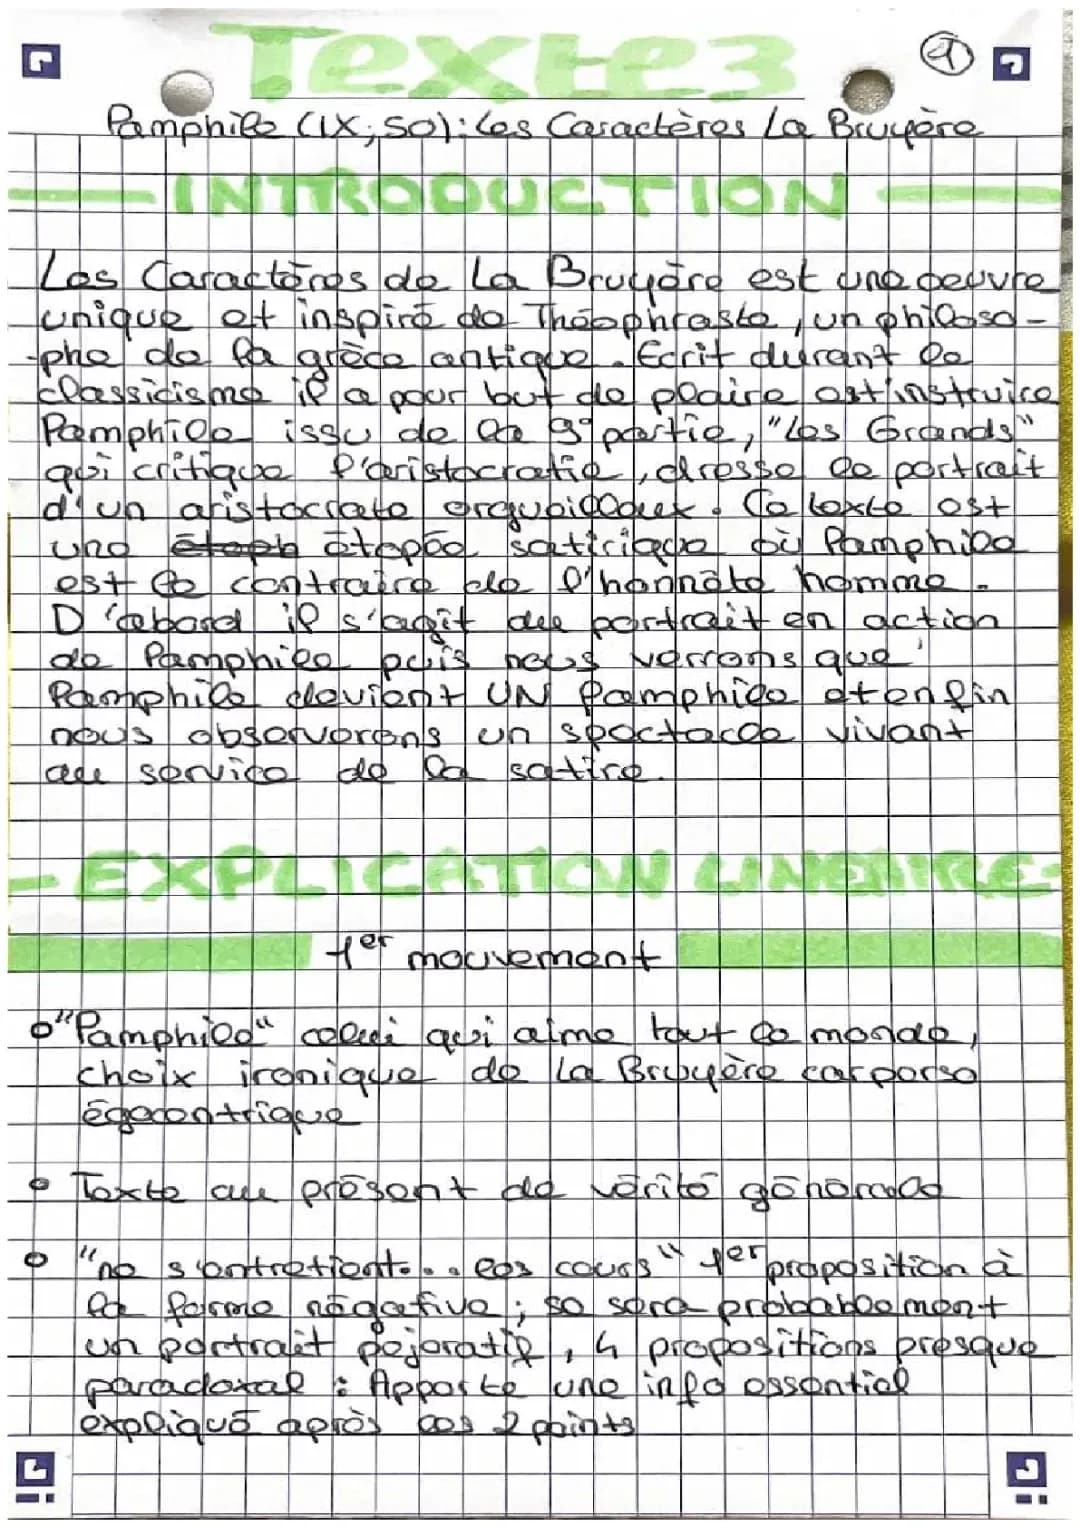 Texte 3
1
Pamphile (IX; 50): Les Caractères La Bruyère
INTRODUCTION
Les Caractères de La Bruyère est une oeuvre
unique et inspiré de Théophraste, un philoso-
-phe de la grèce antique. Ecrit durant le
classicisme il a pour but de plaire est instruire
Pamphile issu de la 9e partie, "Les Grands"
qui critique l'aristocratie, dresse le portrait
d'un aristocrate orgueilleux. Ce texte est
une étoph étopée satirique où Pamphile
est le contraire de l'honnête homme.
D'abord il s'agit du portrait en action
de Pamphile puis nous verrons que
Pamphile devient UN Pamphile et enfin
nous observerons un spectacle vivant
au service de la satire.
EXPLICATION LINEAIRE
1er mouvement
"Pamphile" celui qui aime tout le monde,
choix ironique de La Bruyère car perso
égocentrique
Texte au présent de vérité générale
"ne s'entretient... les cours" 1er proposition à
la forme négative; se sera probablement
un portrait pejoratif, 4 propositions presque
paradoxal : Apporte une info essentiel
expliqué après les 2 points